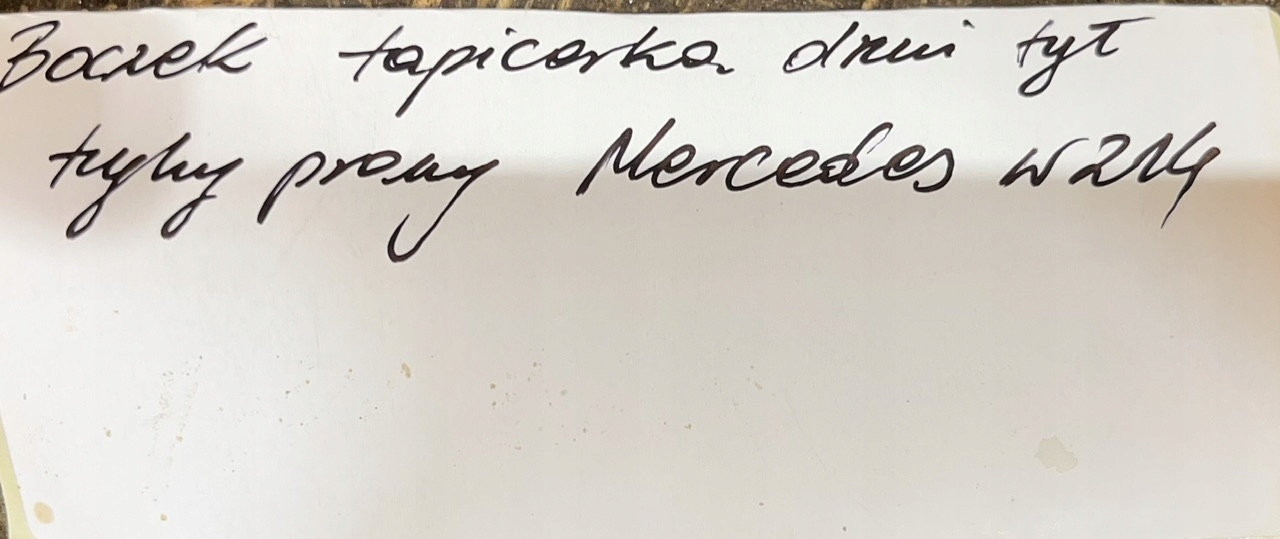 Boczek tapicerka drzwi tył
tylny prawy Mercedes W214